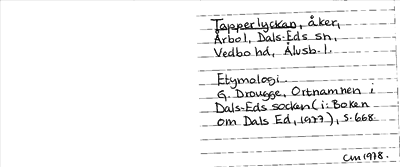 Tapperlyckan, åker,
Årbol, Dals-Eds sn,
Vedbo hd, Älvsb. l.
Etymologi.
G. Drougge, Ortnamnen i
Dals-Eds socken (i: Boken
om Dals Ed, 1927), s. 668
CM 1978.